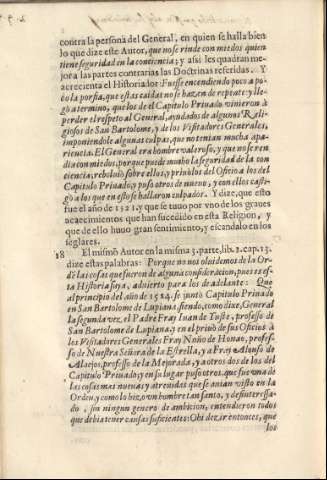 contra la persona del General, en quien se halla bien
lo que dize este Autor, que no se rinde con miedos quien
tiene seguridad en la conciencia; y assi les quadran me-
jor a las partes contrarias las Doctrinas referidas. Y
acrecienta el Historiador: Fuesse encendiendo poco a po-
co la porfia, que estas caidas no se hazen de repente: y lle-
gò a termino, que los de el Capitulo Privado vinieron à
perder el respeto al General, ayudados de algunos Reli-
giosos de San Bartolome, y de los Visitadores Generales,
imponiendole algunas culpas, que no tenian mucha apa-
riencia. El General era hombre valeroso, y que no se ren-
dia con miedos, porque puede mucho la seguridad de la con
ciencia, rebolviò sobre ellos, y privòlos del Oficio à los del
Capitulo Privado, y puso otros de nuevo, y con ellos casti-
gò à los que en esto se hallaron culpados. Y dize, que esto
fue el año de 1521. y que se tuvo por vno de los graves
acaecimientos que han sucedido en esta Religion, y
que de ello huvo gran sentimiento, y escandalo en los
seglares.
18 El mismo Autor en la misma 3. parte, lib. 2. cap. 13.
dize estas palabras: Porque no nos olvidemos de la Or-
dẽ las cosas que fueron de alguna consideracion, pues es es-
ta Historia suya, advierto para los de adelante: Que
al principio del año de 1524. se juntò Capitulo Privado
en San Bartolome de Lupiana, siendo, como dize, General
la segunda vez, el Padre Fray Iuan de Yuste, professo de
San Bartolome de Lupiana, y en el privò de sus Oficios à
los Visitadores Generales Fray Nuño de Honao, profes-
so de Nuestra Señora de la Estrella, y a Fray Alonso de
Alaejos, professo de la Mejorada, y a otros dos de los del
Capitulo Privado, y en su lugar puso otros, que fue vna de
las cosas mas nuevas y atrevidas que se avian visto en la
Orden, y como lo hizo vn hombre tan santo, y desinteressa-
do, sin ningun genero de ambicion, entendieron todos
que debia tener causas suficientes: Ohi dezir entonces, que
los